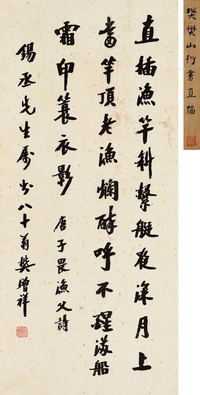 直插漁竿斜繫艇夜深月上
當竿頂老漁爛醉呼不醒滿船
霜印蓑衣影 唐子畏漁父詩
錫丞先生屬書八十翁樊增祥
樊樊山行書直幅